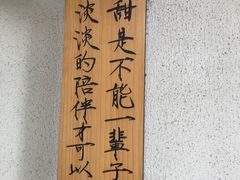 甜是不能一辈子
淡淡的陪伴才可以